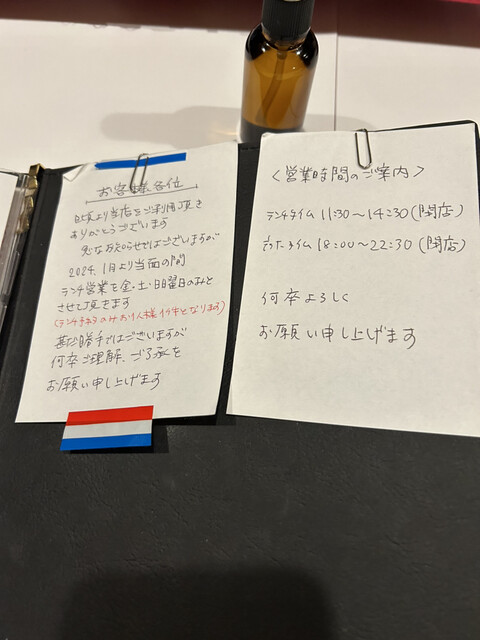 お客様各位
日頃より当店をご利用頂き
ありがとうございます
急なお知らせではございますが
2024.1月より当面の間
ランチ営業を金・土・日曜日のみと
させて頂きます
(ランチタイムのみお1人様1ドリンクとなります)
甚だ勝手ではございますが
何卒ご理解、ご了承を
お願い申し上げます
<営業時間のご案内>
ランチタイム 11:30〜14:30(閉店)
ディナータイム 18:00〜22:30(閉店)
何卒よろしく
お願い申し上げます